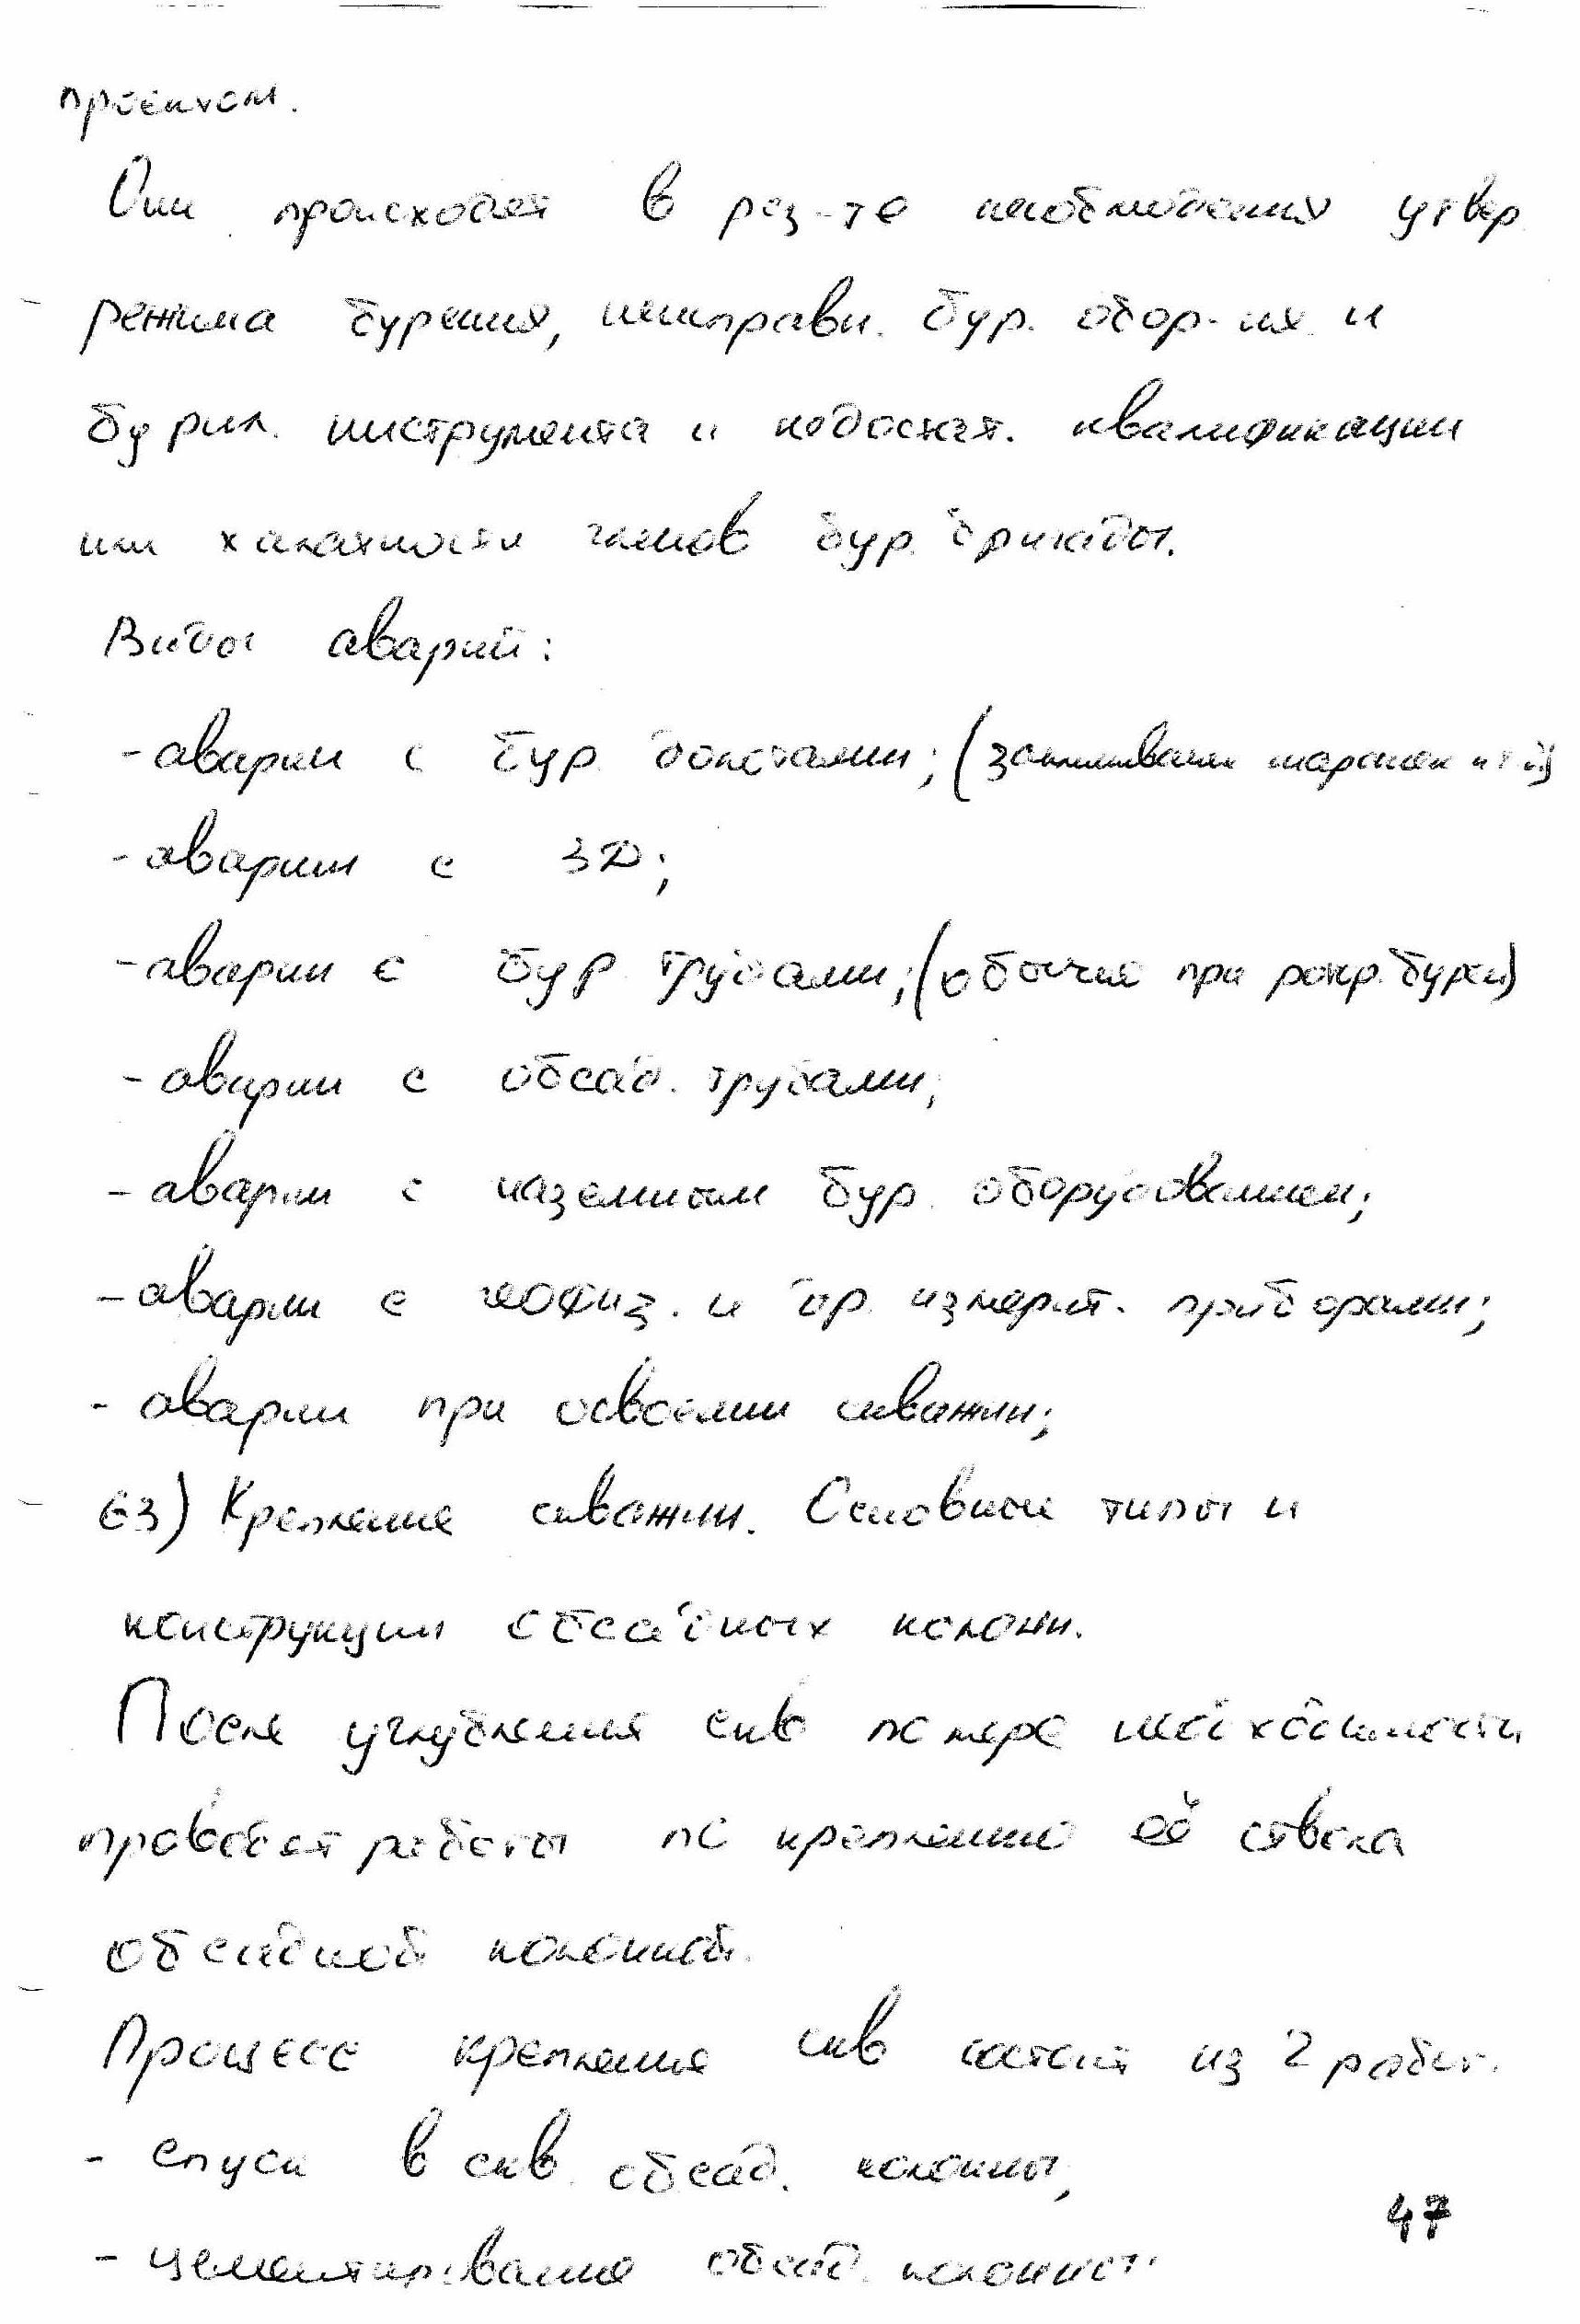 проектом.
Они происходят в рез-те несоблюдения утвер
режима бурения, неисправн. бур. обор-ия и
бурил. инструмента и недостат. квалификации
или халатности членов бур. бригады.
Виды аварий:
- аварии с бур. долотами; (заклинивание шарошек и т.д)
- аварии с ЗД;
- аварии с бур. трубами; (обычно при ротр. бурен)
- аварии с обсад. трубами;
- аварии с наземным бур. оборудованием;
- аварии с геофиз. и др. измерит. приборами;
- аварии при освоении скважин;
63) Крепление скважин. Основные типы и
конструкции обсадных колонн.
После углубления скв по мере необходимости
проводят работы по креплению её ствола
обсадной колонной.
Процесс крепления скв состоит из 2 работ.
- спуск в скв. обсад. колонны,
- цементирование обсад. колонност.
47